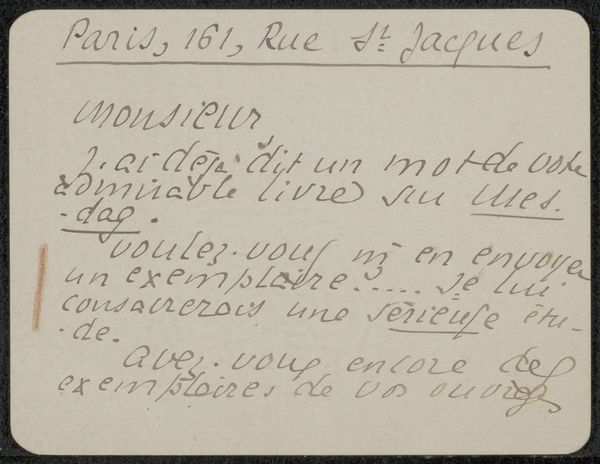 Paris, 161, Rue St. Jacques
Monsieur,
J'ai déjà dit un mot de votre
admirable livre sur Mes.
-dag.
Voulez-vous m'en envoyer
un exemplaire?..... Je lui
consacrerais une sérieuse étu-
-de.
Avez-vous encore des
exemplaires de vos ouvrages